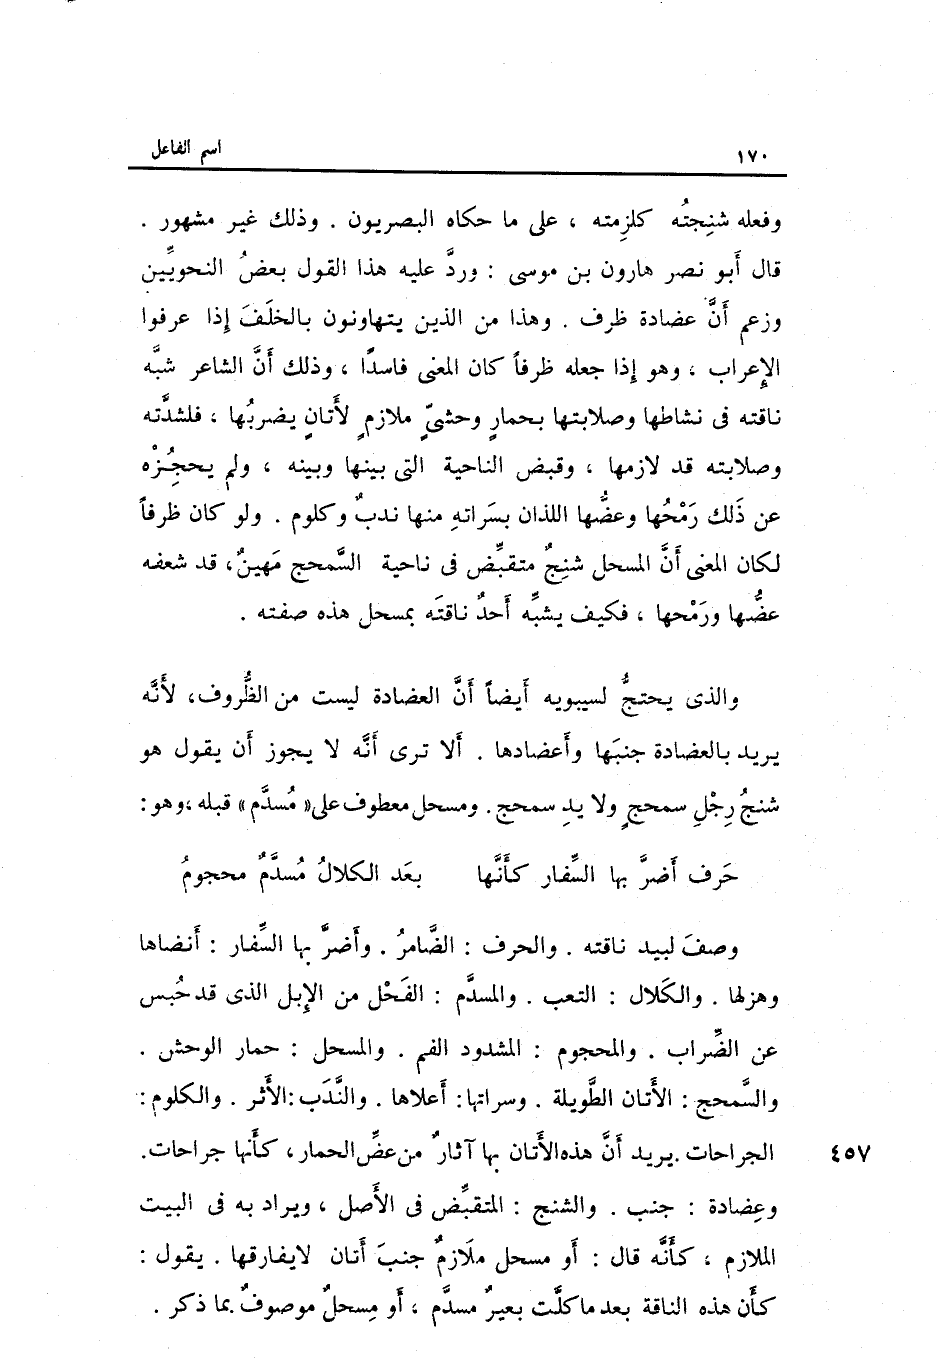 ١٧٠ اسم الفاعل
وفعله شنِجتُه كلزِمته ، على ما حكاه البصريون . وذلك غير مشهور .
قال أَبو نصر هارون بن موسى : وردَّ عليه هذا القول بعضُ النحويِّين
وزعم أَنَّ عضادة ظرف . وهذا من الذين يتهاونون بالخلَفَ إِذا عرفوا
الإِعراب ، وهو إِذا جعله ظرفاً كان المعنى فاسدًا ، وذلك أَنَّ الشاعر شبَّه
ناقته فى نشاطها وصلابتها بحمارٍ وحشىٍّ ملازمٍ لأَتانٍ يضربُها ، فلشدَّته
وصلابته قد لازمها ، وقبض الناحية التى بينها وبينه ، ولم يحجُزْه
عن ذَلك رَمْحُها وعضُّها اللذان بسَراتهِ منها ندبٌ وكلوم . ولو كان ظرفاً
لكان المعنى أَنَّ المسحل شنِجٌ متقبِّض فى ناحية السَّمحج مَهينٌ، قد شعفه
عضُّها ورَمْحها ، فكيف يشبِّه أَحدٌ ناقتَه بمسحل هذه صفته .
والذى يحتجُّ لسيبويه أَيضاً أَنَّ العضادة ليست من الظُّروف، لأَنَّه
يريد بالعضادة جنبَها وأَعضادها . أَلا ترى أَنَّه لا يجوز أَن يقول هو
شنجُ رِجْلِ سمحجٍ ولا يدِ سمحج . ومسحل معطوف على« مُسدَّم» قبله ،وهو:
حَرف أَضرَّ بها السِّفار كأَنَّها بعَد الكلالُ مُسدَّمٌ محجومُ
وصفَ لبيد ناقته . والحرف : الضَّامرُ . وأَضرَّ بها السِّفار : أَنضاها
وهزلها . والكَلال : التعب . والمسدَّم : الفَحْل من الإِبل الذى قد حُبس
عن الضِّراب . والمحجوم : المشدود الفم . والمسحل : حمار الوحش .
والسَّمحج : الأَتان الطَّويلة . وسراتها: أَعلاها . والنَّدَب :الأَثر . والكلوم :
الجراحات .يريد أَنَّ هذه الأَتان بها آثارٌ من عضِّ الحمار، كأَنها جراحات. ٤٥٧
وعِضادة : جنب . والشنج : المتقبِّض فى الأَصل ، ويراد به فى البيت
الملازم ، كأَنَّه قال : أَو مسحل ملَازمٌ جنبَ أَتان لايفارقها . يقول :
كأَن هذه الناقة بعد ماكلَّت بعيرٌ مسدَّم ، أَو مِسحلٌ موصوفٌ بما ذكر .